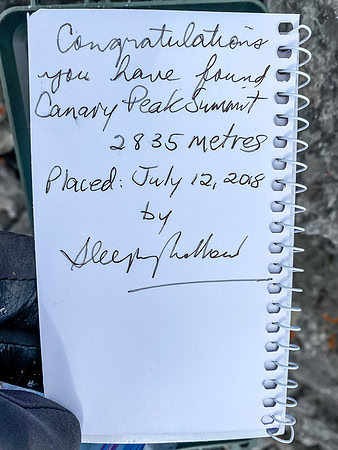 Congratulations
you have found
Canary Peak Summit
2835 metres
Placed: July 12, 2018
by
Sleepy Hollow